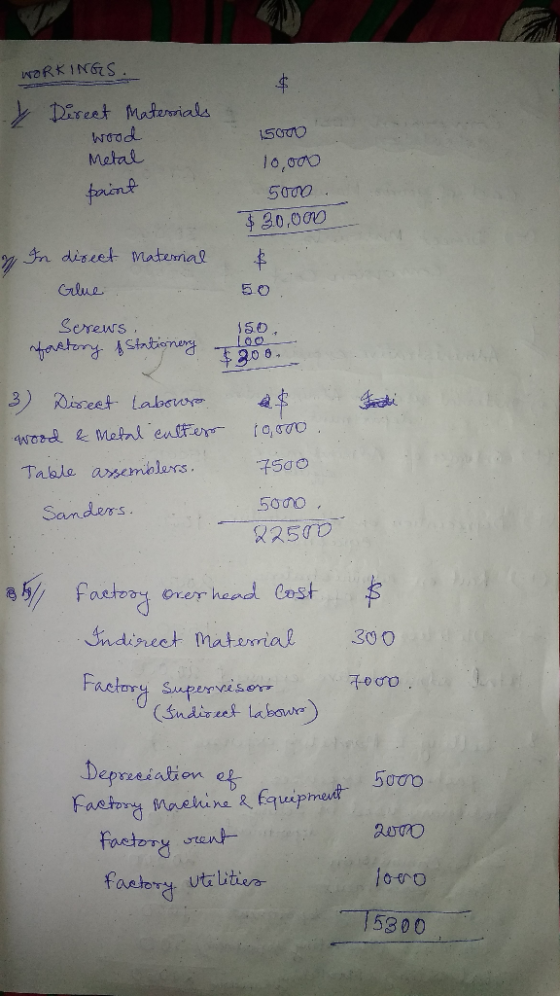 WORKINGS.
$
1/ Direct Materials
wood 15000
Metal 10,000
paint 5000.
$30,000
2/ In direct Material $
Glue 50
Screws. 150.
factory & Stationery 100
$300.
3) Direct Labour $
wood & Metal cutters 10,000.
Table assemblers. 7500
Sanders. 5000.
22500
5// Factory overhead Cost $
Indirect Material 300
Factory Supervisor 7000.
(Indirect Labour)
Depreciation of
Factory Machine & Equipment 5000
Factory rent 2000
Factory Utilities 1000
15300